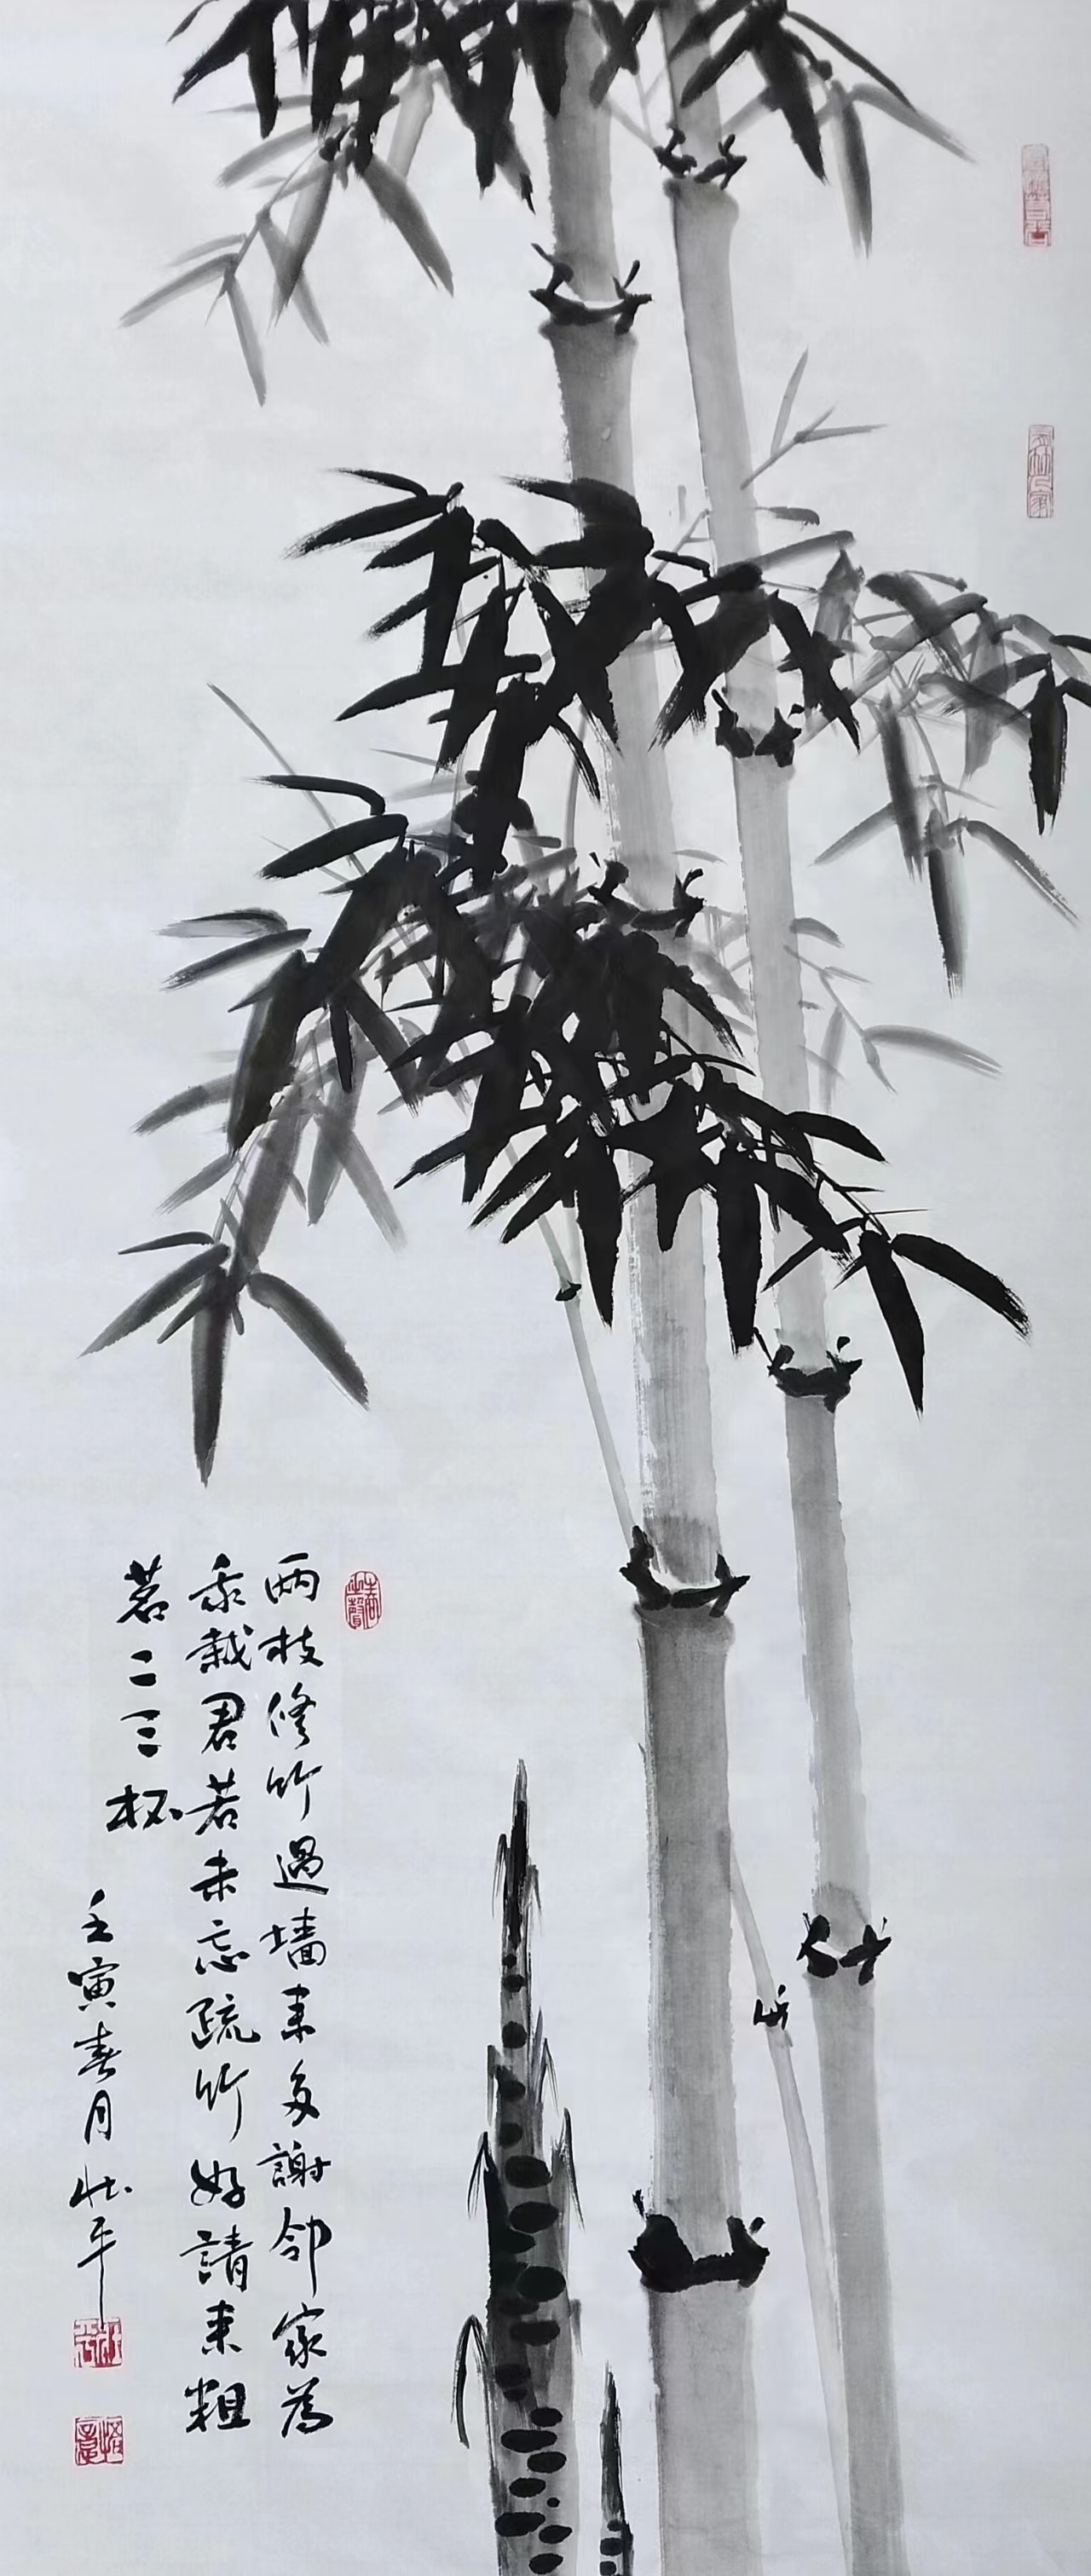 两枝修竹過墻来多謝鄰家為
我栽君若未忘疏竹好請来粗
茗二三杯
壬寅春月壯平